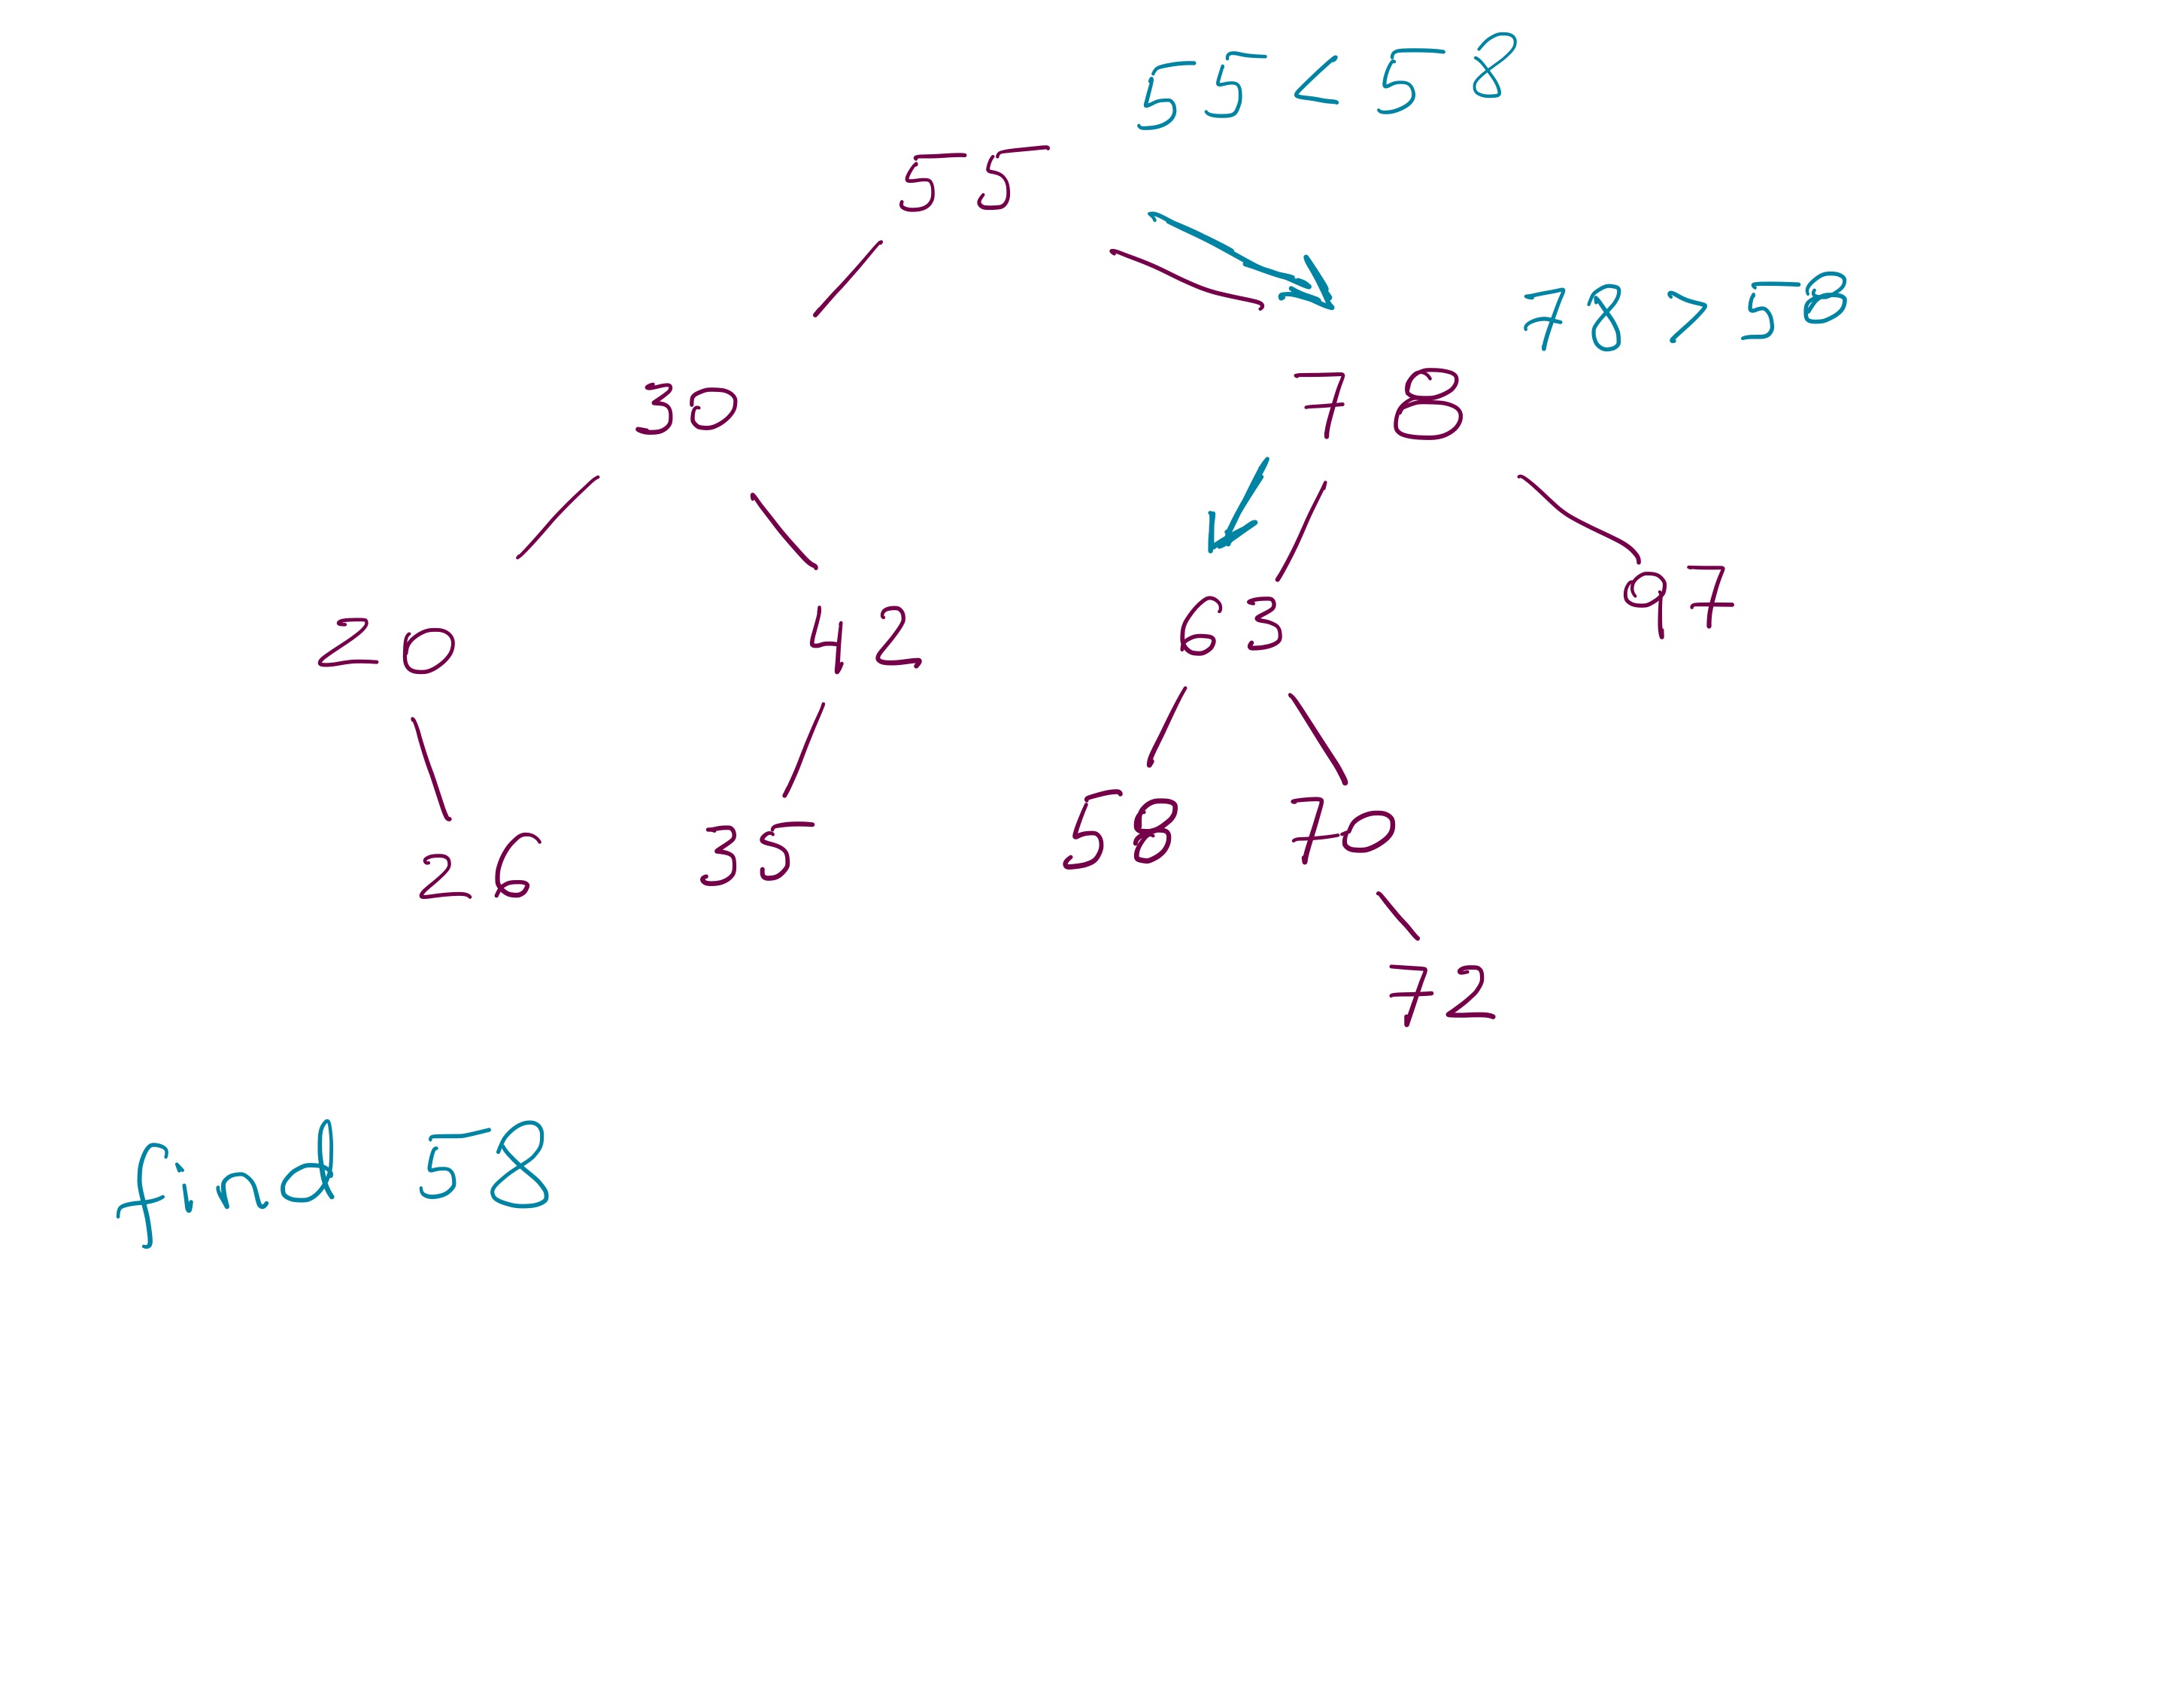 55 < 58
55
78 > 58
30 78
20 42 63 97
26 35 58 70
72
find 58